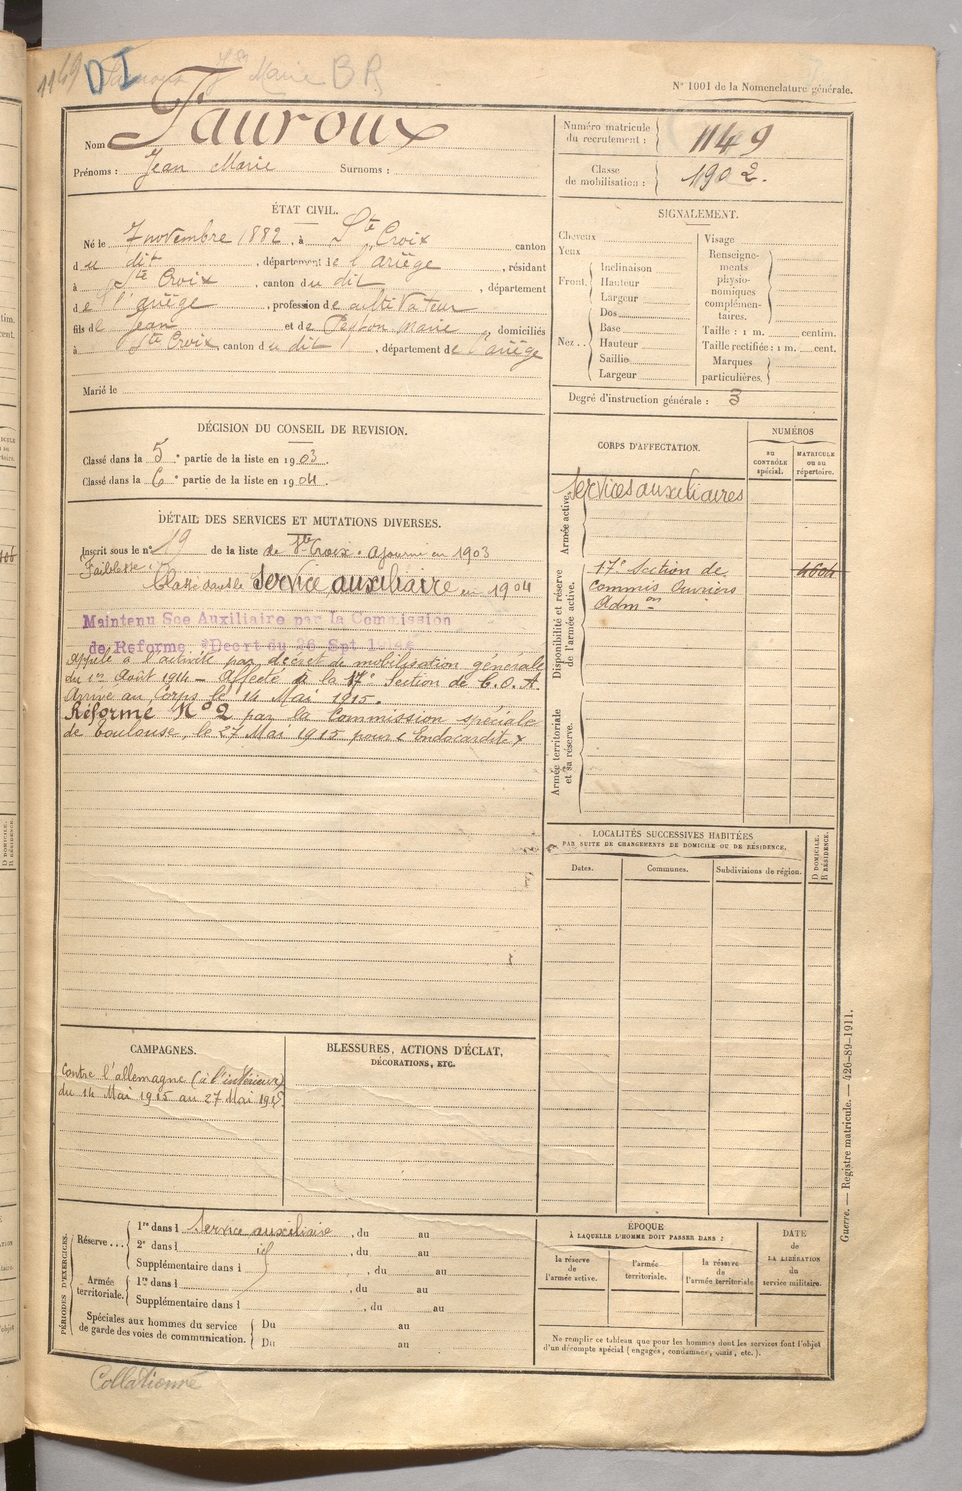 1149 DI Jauroux Jn Marie BR
N° 1001 de la Nomenclature générale.
Nom Jauroux
Prénoms : Jean Marie Surnoms :
Numéro matricule du recrutement : 1149
Classe de mobilisation : 1902.
ÉTAT CIVIL.
Né le 7 novembre 1882, à Ste Croix canton
du dit, département de l'ariège, résidant
à Ste Croix, canton du dit, département
de l'ariège, profession de cultivateur
fils de Jean et de Peyron Marie, domiciliés
à Ste Croix, canton du dit, département de l'ariège
Marié le
SIGNALEMENT.
Cheveux
Yeux
Front. Inclinaison
Hauteur
Largeur
Nez. . Dos
Base
Hauteur
Saillie
Largeur
Visage
Renseigne-
ments
physio-
nomiques
complémen-
taires.
Taille : 1 m. centim.
Taille rectifiée : 1 m. cent.
Marques
particulières.
Degré d'instruction générale : 3
DÉCISION DU CONSEIL DE REVISION.
Classé dans la 5e partie de la liste en 1903.
Classé dans la 6e partie de la liste en 1904.
DÉTAIL DES SERVICES ET MUTATIONS DIVERSES.
Inscrit sous le n° 19 de la liste de Ste Croix. Ajourné en 1903
Faiblesse.
Classé dans le Service auxiliaire en 1904
Maintenu Sce Auxiliaire par la Commission
de Reforme Decret du 26 Spt
Appelé à l'activité par décret de mobilisation générale
du 1er Août 1914 – Affecté à la 17e Section de C.O.A.
Arrivé au Corps le 14 Mai 1915.
Réformé N° 2 par la Commission spéciale
de Toulouse, le 27 Mai 1915 pour « Endocardite »
CORPS D'AFFECTATION.
NUMÉROS
au
CONTRÔLE
spécial.
MATRICULE
ou au
répertoire.
Armée active.
Services auxiliaires
Disponibilité et réserve
de l'armée active.
17e Section de
Commis Ouvriers
Admon
4604
Armée territoriale
et sa réserve.
LOCALITÉS SUCCESSIVES HABITÉES
PAR SUITE DE CHANGEMENTS DE DOMICILE OU DE RÉSIDENCE.
Dates.
Communes.
Subdivisions de région.
D DOMICILE.
R RÉSIDENCE.
CAMPAGNES.
Contre l'allemagne (à l'intérieur)
du 14 Mai 1915 au 27 Mai 1915.
BLESSURES, ACTIONS D'ÉCLAT,
DÉCORATIONS, ETC.
PÉRIODES D'EXERCICES.
Réserve . . . 1re dans l Service auxiliaire, du au
2e dans l id, du au
Supplémentaire dans l, du au
Armée territoriale. 1re dans l, du au
Supplémentaire dans l, du au
Spéciales aux hommes du service
de garde des voies de communication.
Du au
Du au
ÉPOQUE
À LAQUELLE L'HOMME DOIT PASSER DANS :
la réserve
de
l'armée active.
l'armée
territoriale.
la réserve
de
l'armée territoriale
DATE
de
LA LIBÉRATION
du
service militaire.
Ne remplir ce tableau que pour les hommes dont les services font l'objet
d'un décompte spécial (engagés, condamnés, omis, etc.).
Guerre. — Registre matricule. — 426-89-1911.
Collationné